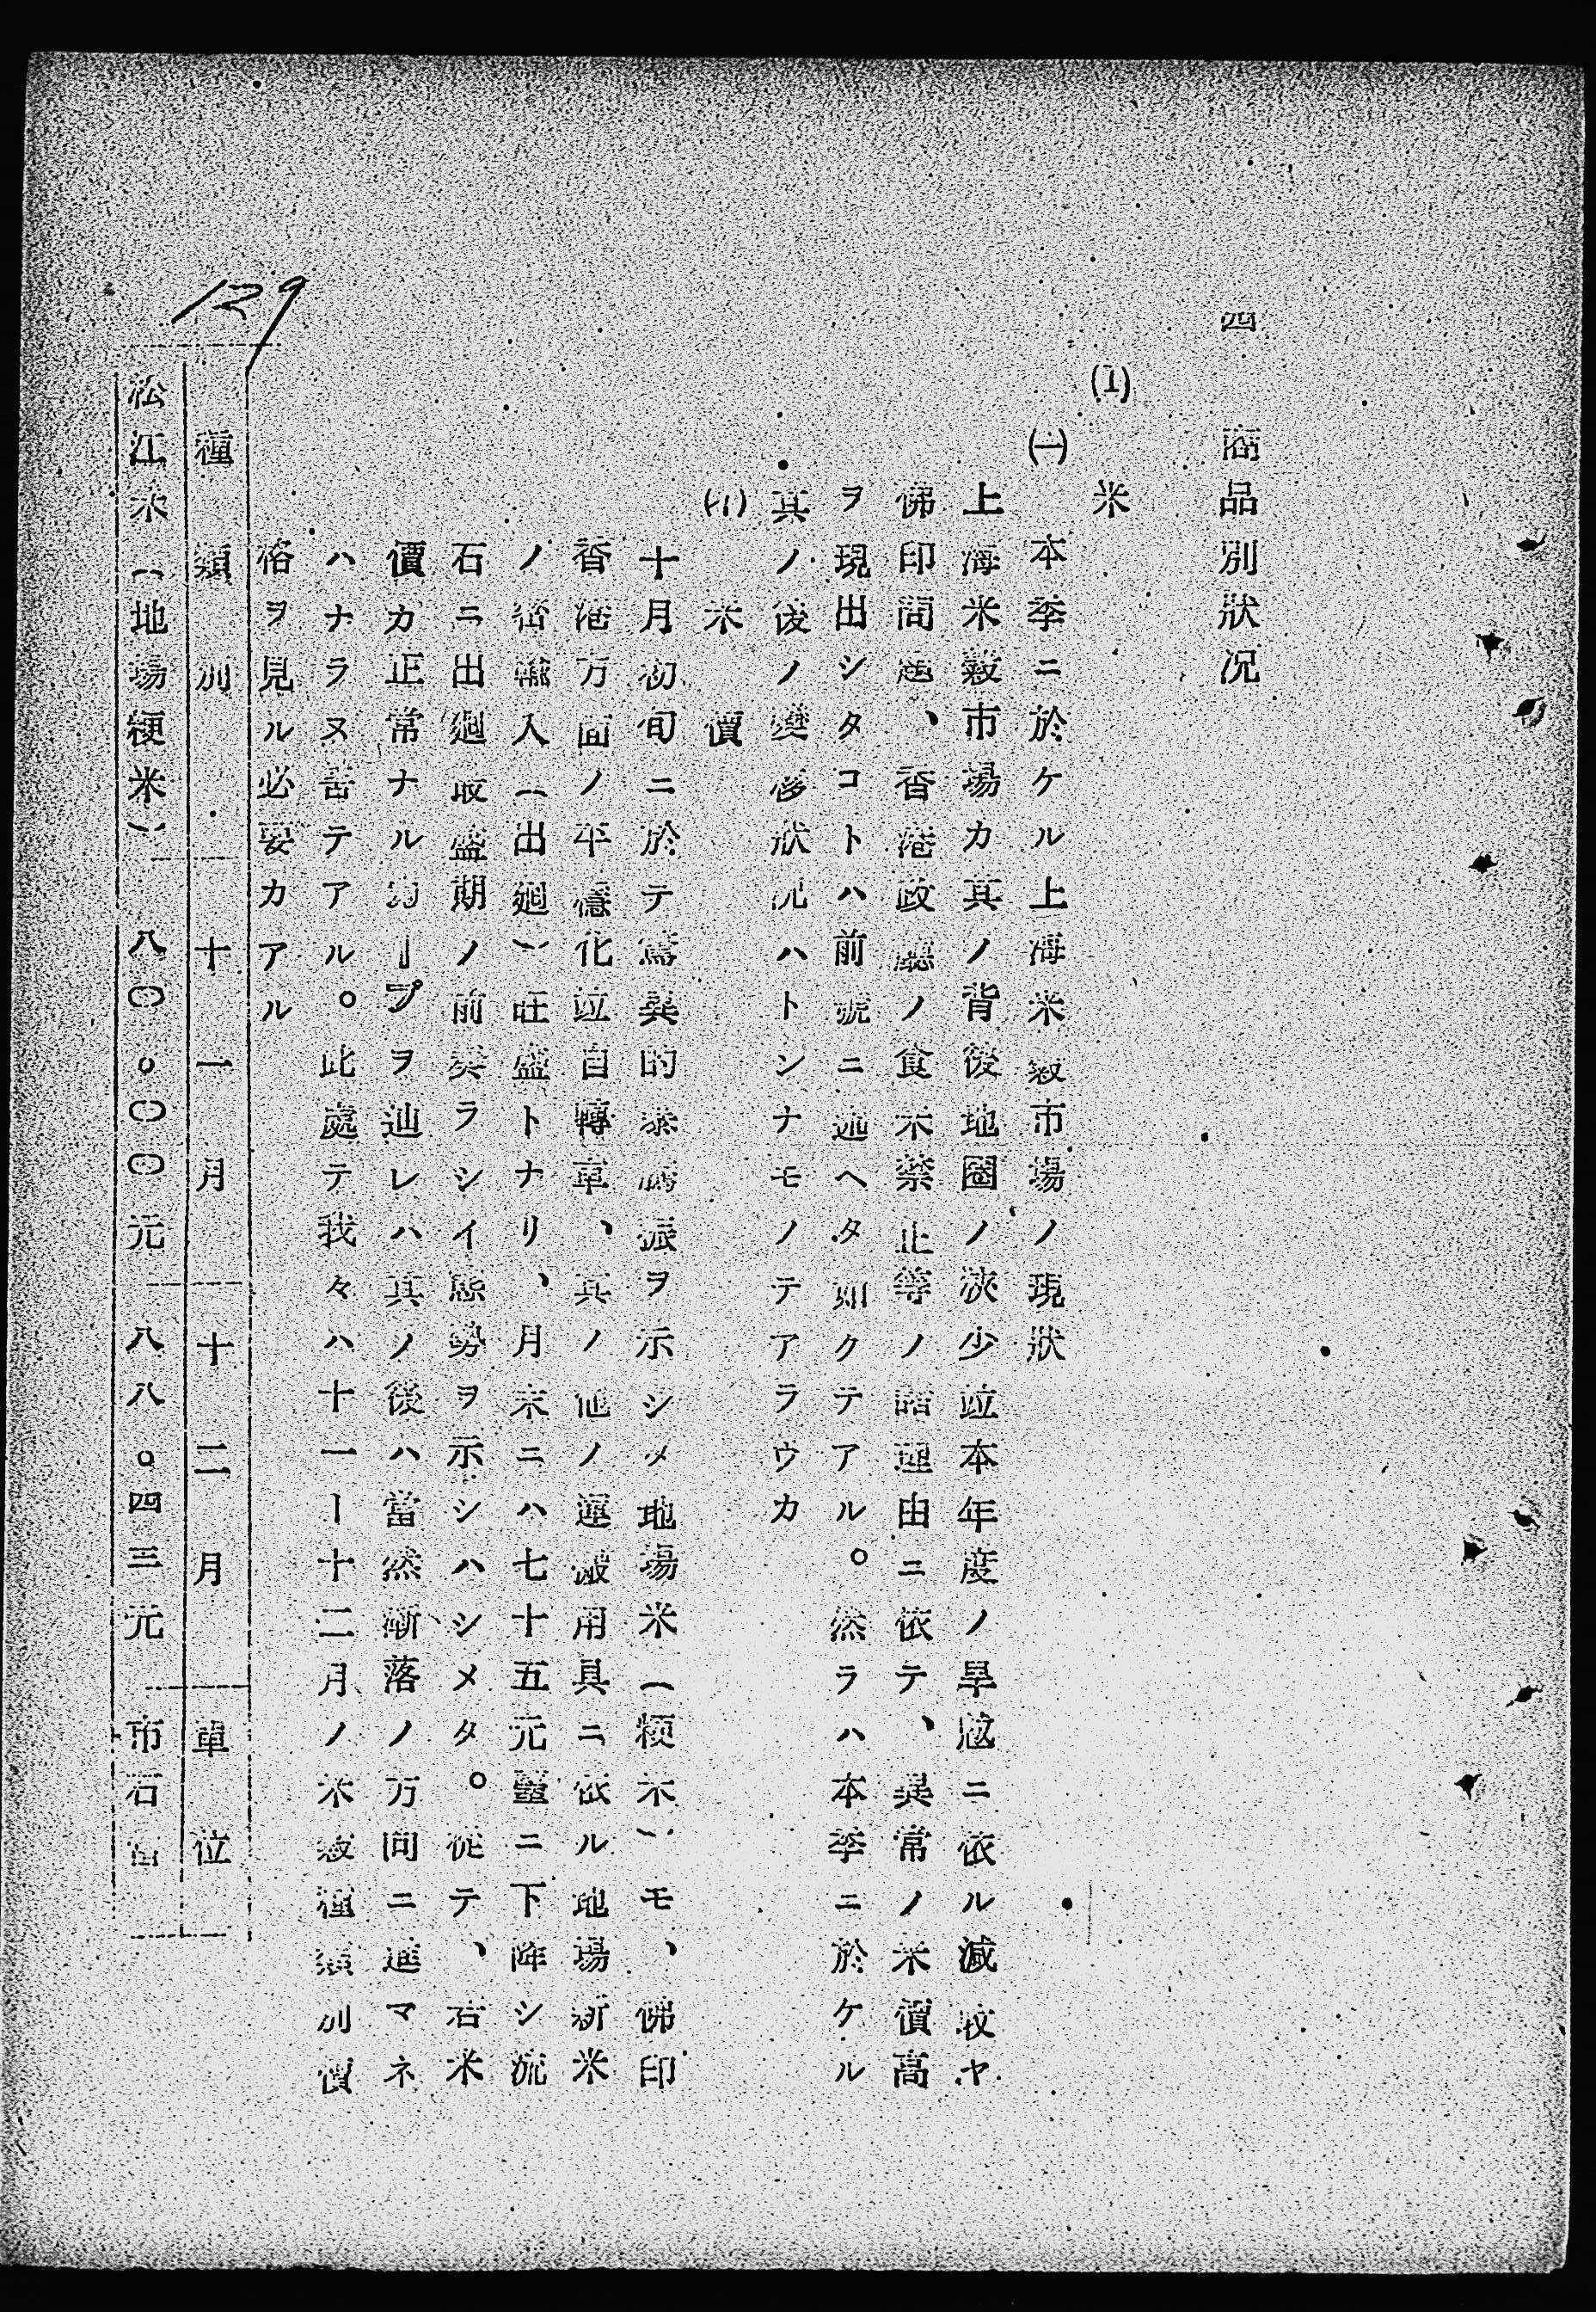 四 商品別狀况
(1) 米
㈠ 本季ニ於ケル上海米穀市場ノ現狀
上海米穀市場カ其ノ背後地圈ノ狹少竝本年度ノ旱魃ニ依ル減收ヤ
佛印問題、香港政廳ノ食米禁止等ノ諸理由ニ依テ、異常ノ米價高
ヲ現出シタコトハ前號ニ述ヘタ如クテアル。然ラハ本季ニ於ケル
其ノ後ノ變移狀況ハトンナモノテアラウカ
(イ) 米價
十月初旬ニ於テ驚異的暴騰振ヲ示シメ地場米(粳米)モ、佛印
香港方面ノ平穩化竝自轉車、其ノ他ノ運搬用具ニ依ル地場新米
ノ密輸入(出廻)旺盛トナリ、月末ニハ七十五元臺ニ下降シ流
石ニ出廻最盛期ノ前奏ラシイ態勢ヲ示シハシメタ。從テ、若米
價カ正常ナルカーブヲ辿レハ其ノ後ハ當然漸落ノ方向ニ進マネ
ハナラヌ筈テアル。此處テ我々ハ十一ー十二月ノ米穀種類別價
格ヲ見ル必要カアル
種類別 十一月 十二月 單位
松江米(地場粳米) 八〇。〇〇元 八八。四三元 市石
129